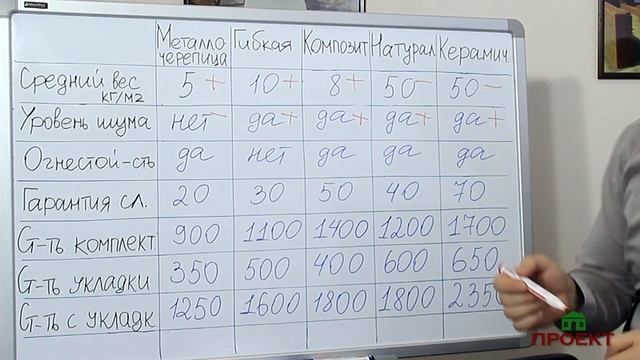 Металло черепица Гибкая Композит Натурал Керамич
Средний вес кг/м2 5 + 10 + 8 + 50 − 50 −
Уровень шума нет − да + да + да + да +
Огнестой-сть да нет да да да
Гарантия сл. 20 30 50 40 70
G-ть комплект 900 1100 1400 1200 1700
G-ть укладки 350 500 400 600 650
G-ть с укладк 1250 1600 1800 1800 2350
ПРОЕКТ